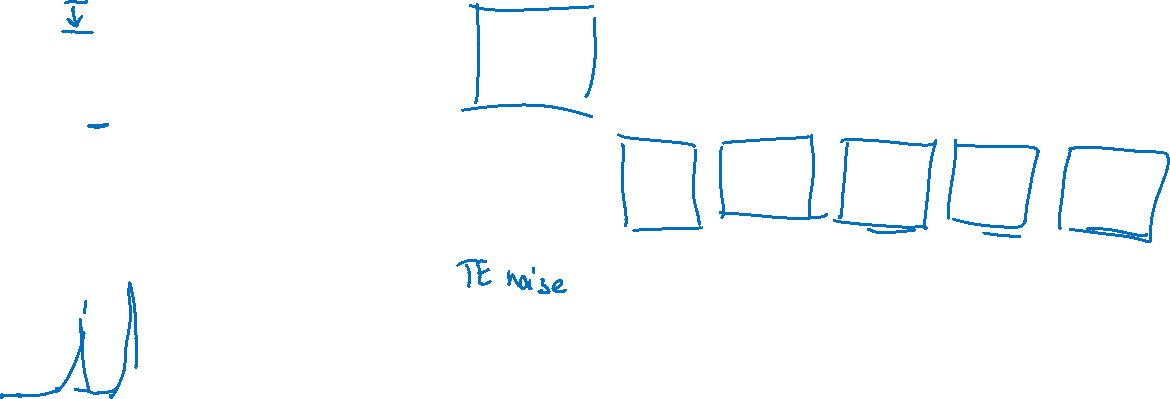 TE noise